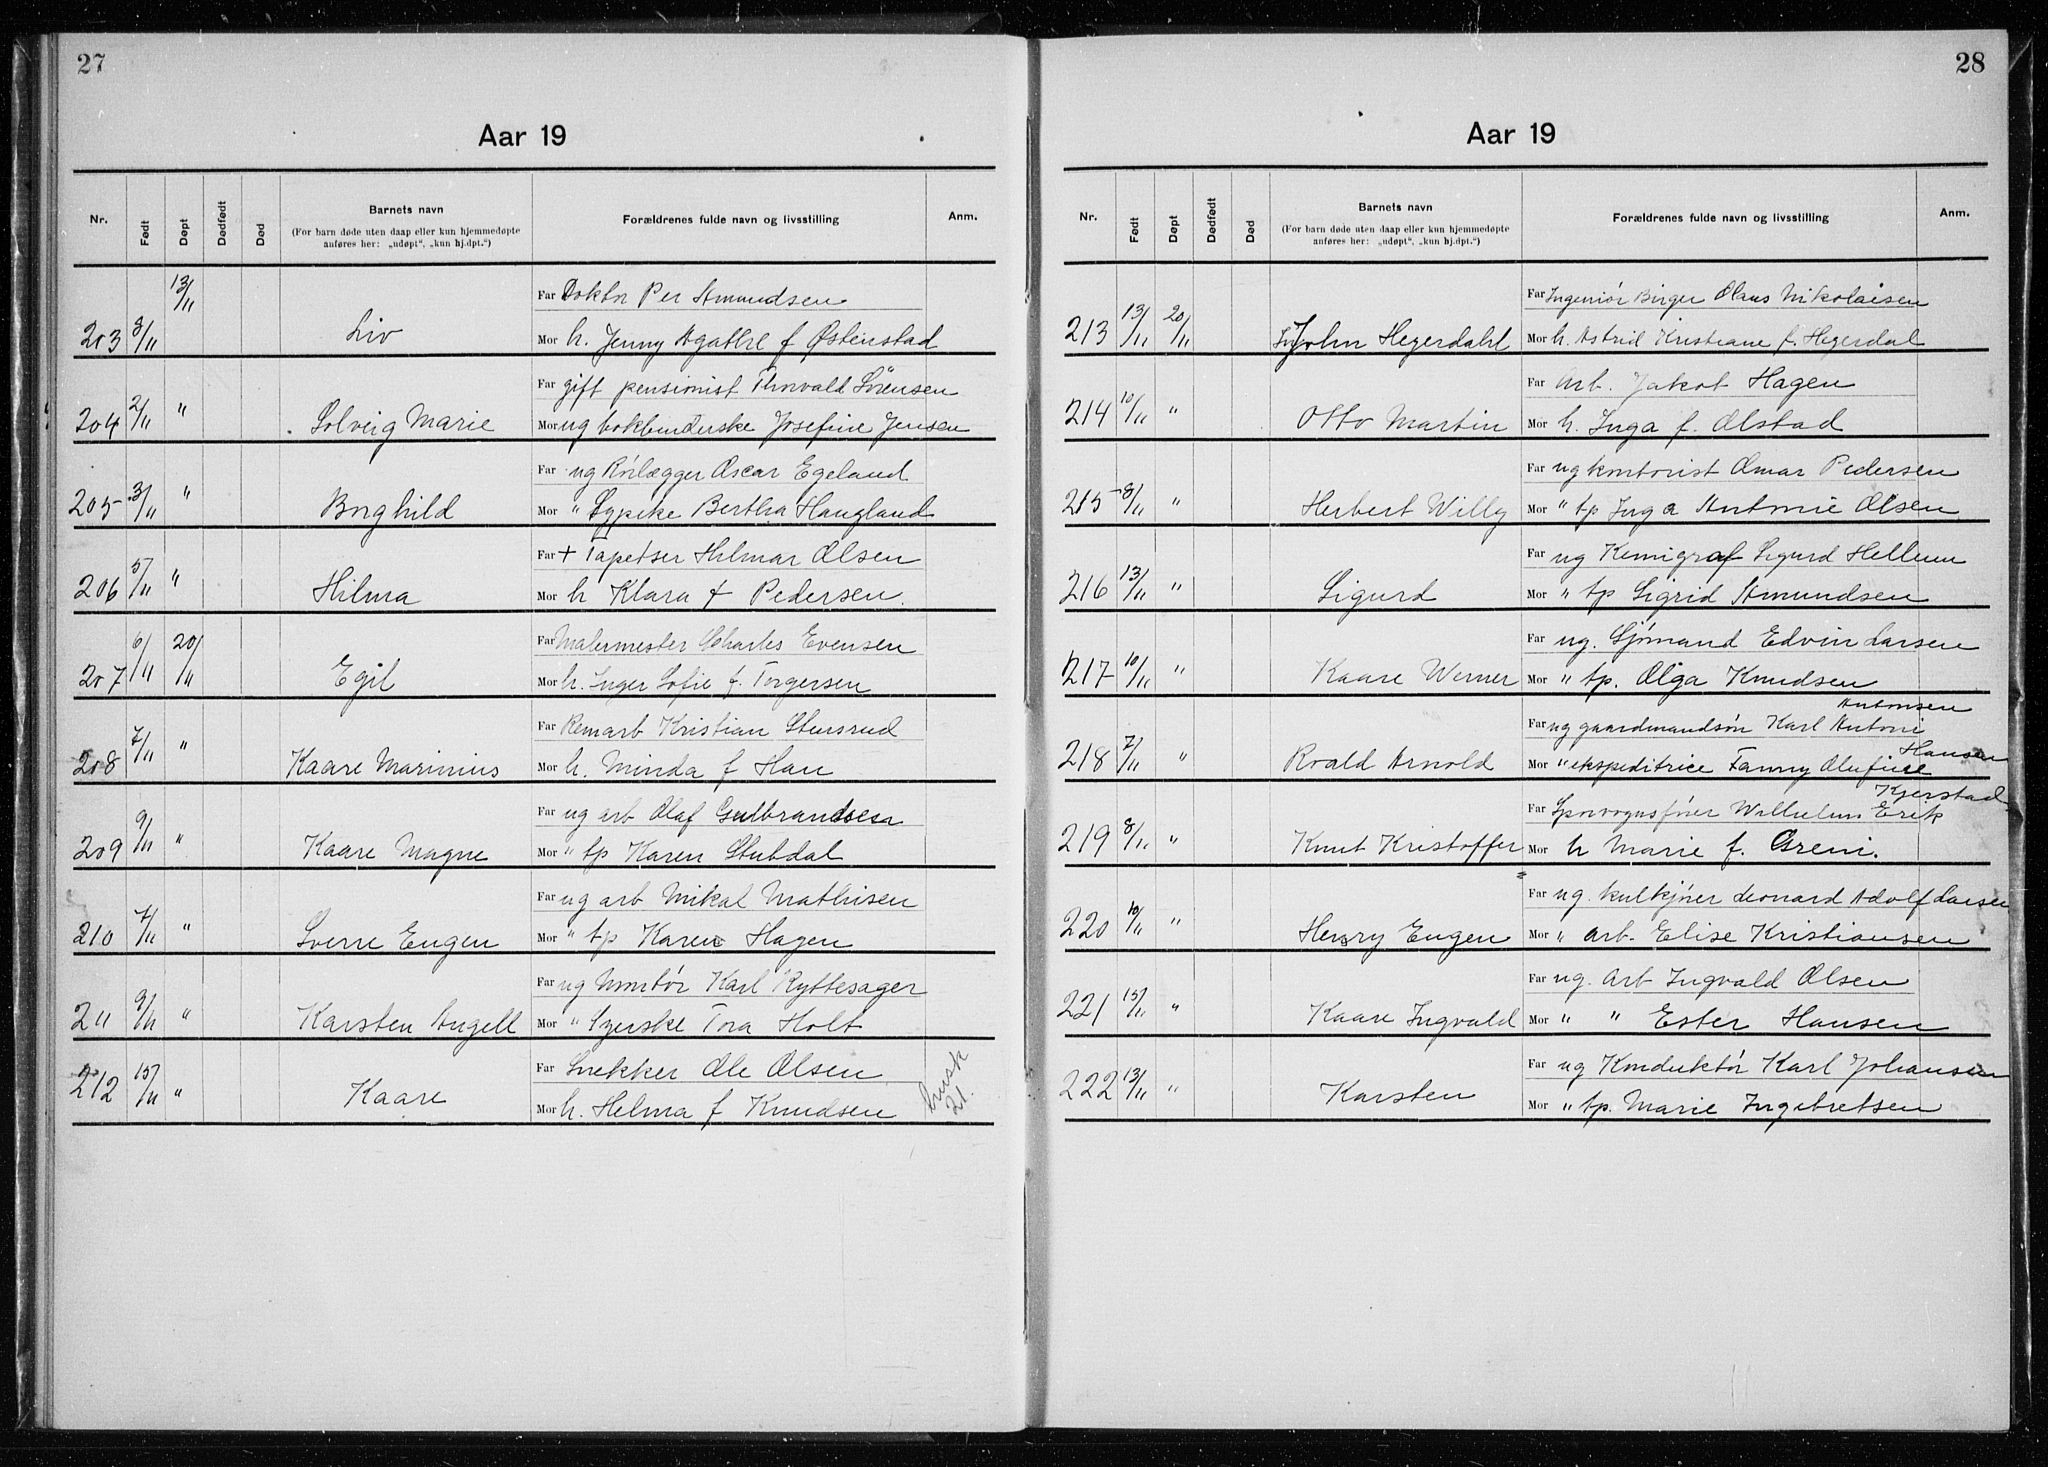 27
Aar 19
Nr. Født Døpt Dødfødt Død Barnets navn Forældrenes fulde navn og livsstilling Anm.
(For barn døde uten daap eller kun hjemmedøpte
anføres her: „udøpt“, „kun hj.dpt.“)
13/11 Far Doktor Per Amundsen
203 3/11 Liv Mor h. Jenny Agathe f Østenstad
Far gift pensionist Thorvald Sörensen
204 2/11 " Solveig Marie Mor ug bokbinderske Josefine Jensen
Far ug Rörlægger Oscar Egeland
205 3/11 " Borghild Mor " Sypike Bertha Haugland
Far + Tapetser Hilmar Olsen
206 5/11 " Hilma Mor h Klara f Pedersen
Far Malermester Charles Evensen
207 6/11 20/11 Egil Mor h. Inger Sofie f. Torgersen
Far Remarb Kristian Stensrud
208 7/11 " Kaare Marinius Mor h. Minda f Hau
Far ug arb Olaf Gulbrandsen
209 9/11 " Kaare Magne Mor " tp Karen Stubdal
Far ug arb Mikal Mathisen
210 7/11 " Sverre Eugen Mor " tp Karen Hagen
Far ug Montør Karl Ryttesager
211 9/11 " Karsten Angell Mor " Syerske Tora Holt
Far Snekker Ole Olsen
212 15/11 " Kaare Mor h. Helma f Knudsen husk 21.
28
Aar 19
Nr. Født Døpt Dødfødt Død Barnets navn Forældrenes fulde navn og livsstilling Anm.
(For barn døde uten daap eller kun hjemmedøpte
anføres her: „udøpt“, „kun hj.dpt.“)
Far Ingeniör Birger Olaus Nikolaisen
213 13/11 20/11 John Hegerdahl Mor h. Astrid Kristiane f. Hegerdal
Far Arb. Jakob Hagen
214 10/11 " Otto Martin Mor h. Inga f. Olstad
Far ug kontorist Omar Pedersen
215 8/11 " Herbert Willy Mor " tp Inga Antonie Olsen
Far ug Kemigraf Sigurd Hellum
216 13/11 " Sigurd Mor " tp Sigrid Amundsen
Far ug. Sjömand Edvin Larsen
217 10/11 " Kaare Werner Mor " tp. Olga Knudsen
Antonsen
Far ug gaardmandsön Karl Antoni
218 7/11 " Roald Arnold Mor " ekspeditrice Fanny Olufine Hansen
Kjerstad
Far Sporvognsförer Wilhelm Erik
219 8/11 " Knut Kristoffer Mor h Marie f. Greni.
Far ug. kulkjörer Leonard Adolf Larsen
220 10/11 " Henry Eugen Mor " arb. Elise Kristiansen
Far ug. Arb Ingvald Olsen
221 15/11 " Kaare Ingvald Mor " " Ester Hansen
Far ug Konduktör Karl Johansen
222 13/11 " Karsten Mor " tp. Marie Ingebretsen